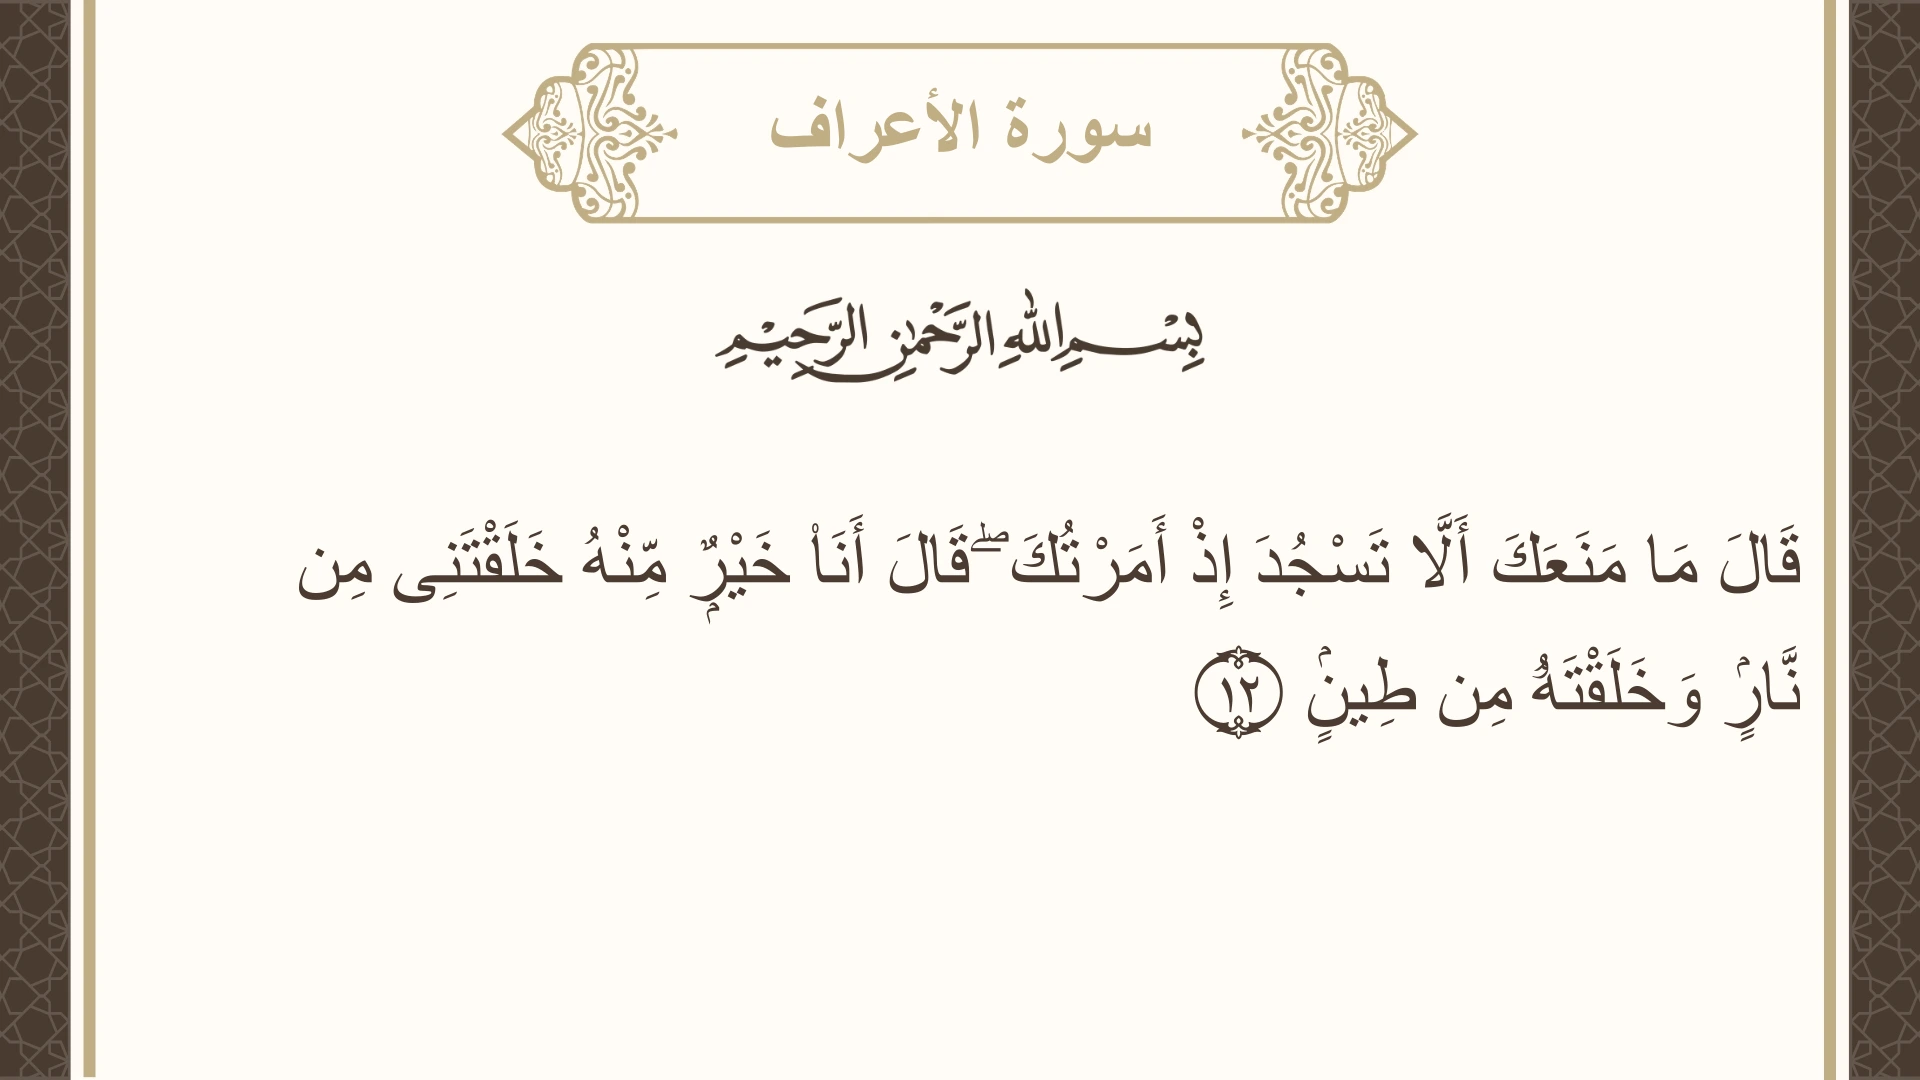 سورة الأعراف
بِسْمِ اللهِ الرَّحْمٰنِ الرَّحِيْمِ
قَالَ مَا مَنَعَكَ أَلَّا تَسْجُدَ إِذْ أَمَرْتُكَ ۖ قَالَ أَنَا۠ خَيْرٌۭ مِّنْهُ خَلَقْتَنِى مِن
نَّارٍۢ وَخَلَقْتَهُۥ مِن طِينٍۢ ١٢